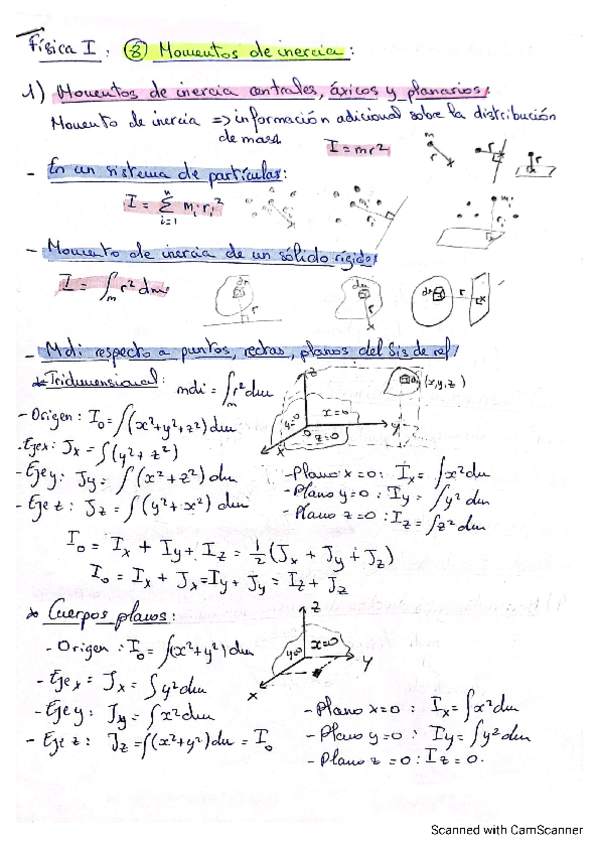 Física I : ⑧ Momentos de inercia :
1) Momentos de inercia centrales, áxicos y planarios:
Momento de inercia => información adicional sobre la distribución
de masa
I = mr²
m
r
r
r
- En un sistema de partículas:
I = Σ mᵢ rᵢ²
n
i=1
mᵢ
rᵢ
- Momento de inercia de un sólido rígido:
I = ∫ₘ r² dm
dm
r
dm
r
dm
r
- Mdi respecto a puntos, rectas, planos del Sis de ref/
* Tridimensional: mdi = ∫ₘ r² dm
z
(x,y,z)
y=0
x=0
z=0
0
y
x
- Origen : I₀ = ∫(x²+y²+z²) dm
- Eje x : Jx = ∫(y²+z²)
- Eje y : Jy = ∫(x²+z²) dm
- Eje z : Jz = ∫(y²+x²) dm
- Plano x=0 : Ix = ∫x² dm
- Plano y=0 : Iy = ∫y² dm
- Plano z=0 : Iz = ∫z² dm
I₀ = Ix + Iy + Iz = 1/2 (Jx + Jy + Jz)
I₀ = Ix + Jx = Iy + Jy = Iz + Jz
* Cuerpos planos:
z
y=0
x=0
y
x
- Origen : I₀ = ∫(x²+y²) dm
- Eje x : Jx = ∫y² dm
- Eje y : Jy = ∫x² dm
- Eje z : Jz = ∫(x²+y²) dm = I₀
- Plano x=0 : Ix = ∫x² dm
- Plano y=0 : Iy = ∫y² dm
- Plano z=0 : Iz = 0.
Scanned with CamScanner